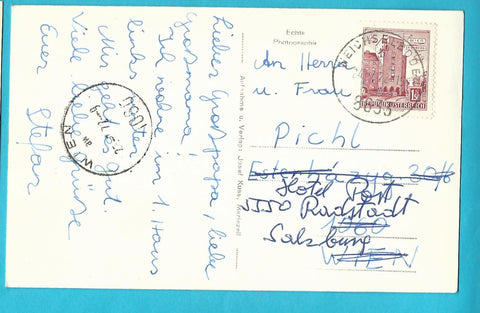 Lieber Großpapa, liebe
Großmama!
Ich wohne im 1. Haus
links.
Mir geht es gut.
Viele liebe Grüße
Euer Stefan
Echte
Photographie
Aufnahme u. Verlag: Josef Kuss, Mariazell
An Herrn
u. Frau
Pichl
Esterházyg. 20/6
Hotel Post
5550 Radstadt
1060
Salzburg
WIEN
WEICHSELBODEN
8633
REPUBLIK ÖSTERREICH
WIEN
1060